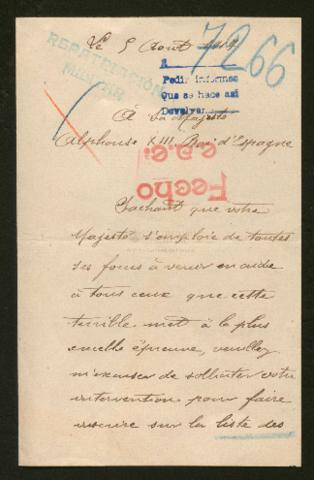 Le 5 Août
7266
REPATRIACION
MILITAR
A
Pedir informes
Que se hace asi
Devolver
À Sa Majesté
Alphonse XIII Roi d'Espagne
Fecho
Sachant que votre
Majesté s'emploie de toutes
ses forces à venir en aide
à tous ceux que cette
terrible met à la plus
cruelle épreuve, veuillez
m'excuser de solliciter votre
intervention pour faire
inscrire sur la liste des